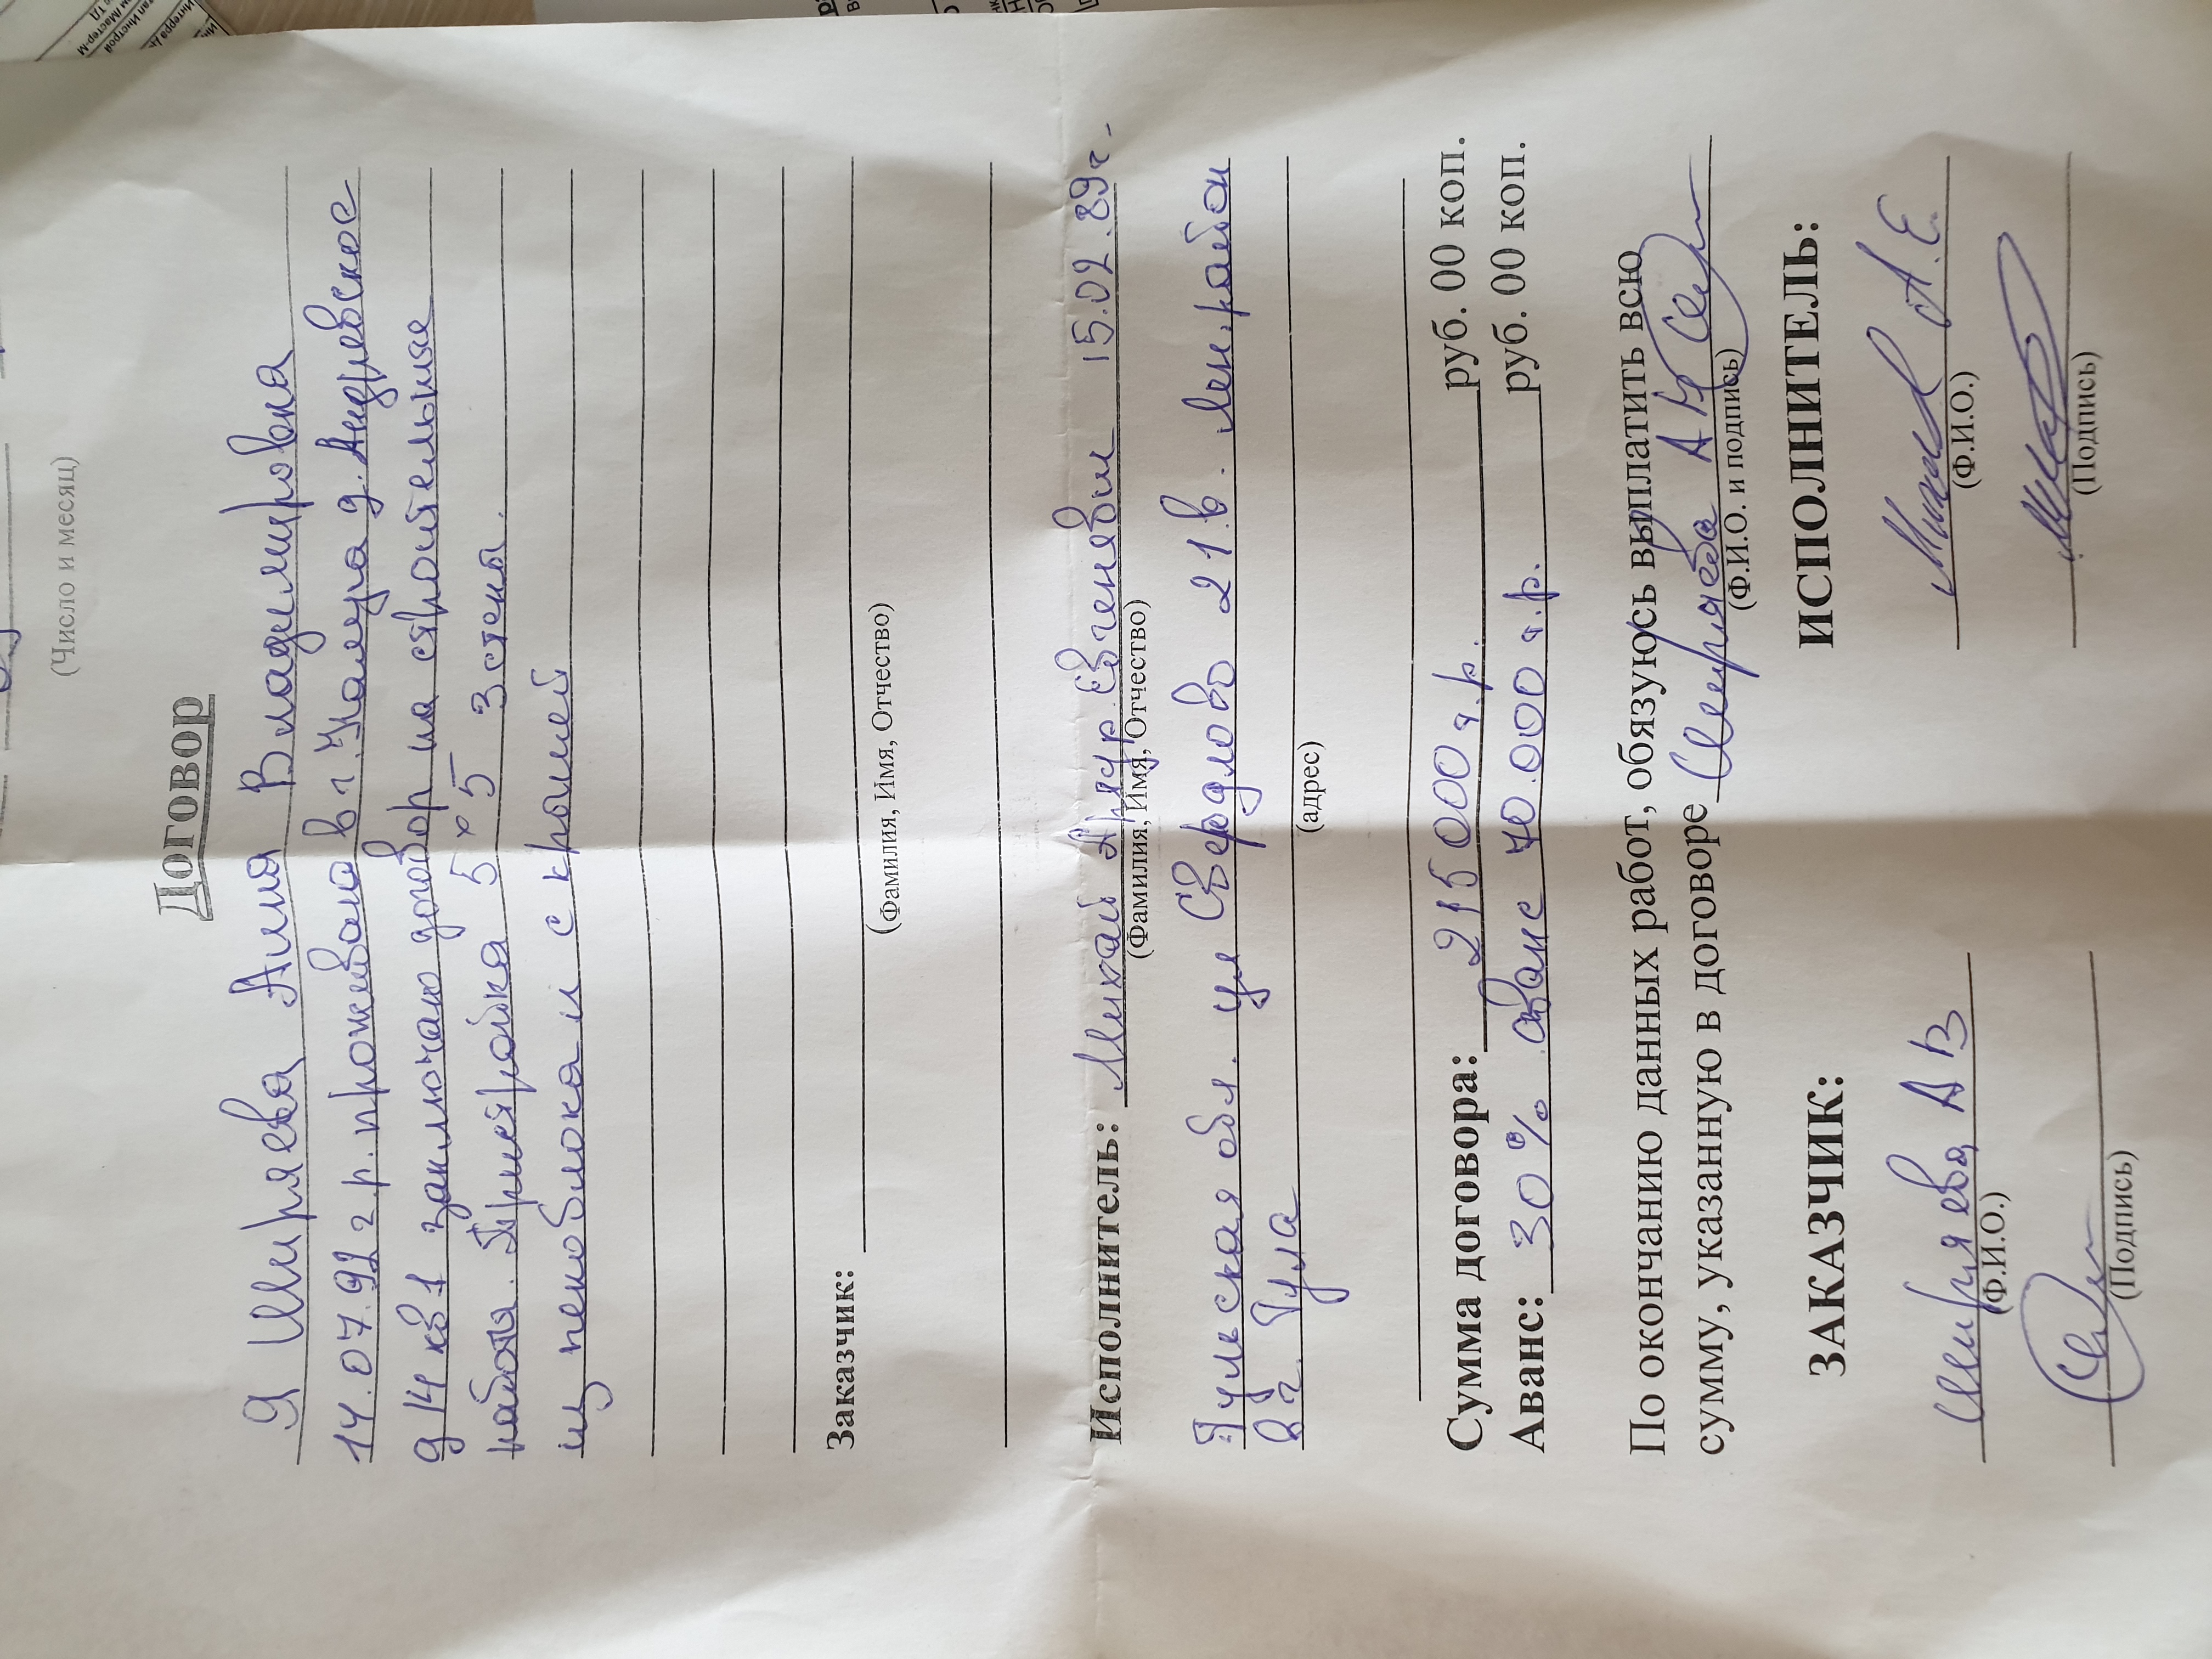 (Число и месяц)
Договор
Я Ширяева Анна Владимировна
14.07.92 г.р. проживаю в г. Калуга д. Андреевское
д 14 кв 1 заключаю договор на строительные
работы. Пристройка 5 × 5 3 стены.
из пекоблока и с крышей
Заказчик:
(Фамилия, Имя, Отчество)
Исполнитель: Михай Артур Евгеневи 15.02.89г.
(Фамилия, Имя, Отчество)
Тульская обл. ул Свердлово 21в. Лен.район
в г. Тула
(адрес)
Сумма договора: 215 000 т.р. руб. 00 коп.
Аванс: 30% аванс 70.000 т.р. руб. 00 коп.
По окончанию данных работ, обязуюсь выплатить всю
сумму, указанную в договоре Ширяева А В
(Ф.И.О. и подпись)
ЗАКАЗЧИК: ИСПОЛНИТЕЛЬ:
Ширяева А В А.Е.
(Ф.И.О.) (Ф.И.О.)
(Подпись) (Подпись)